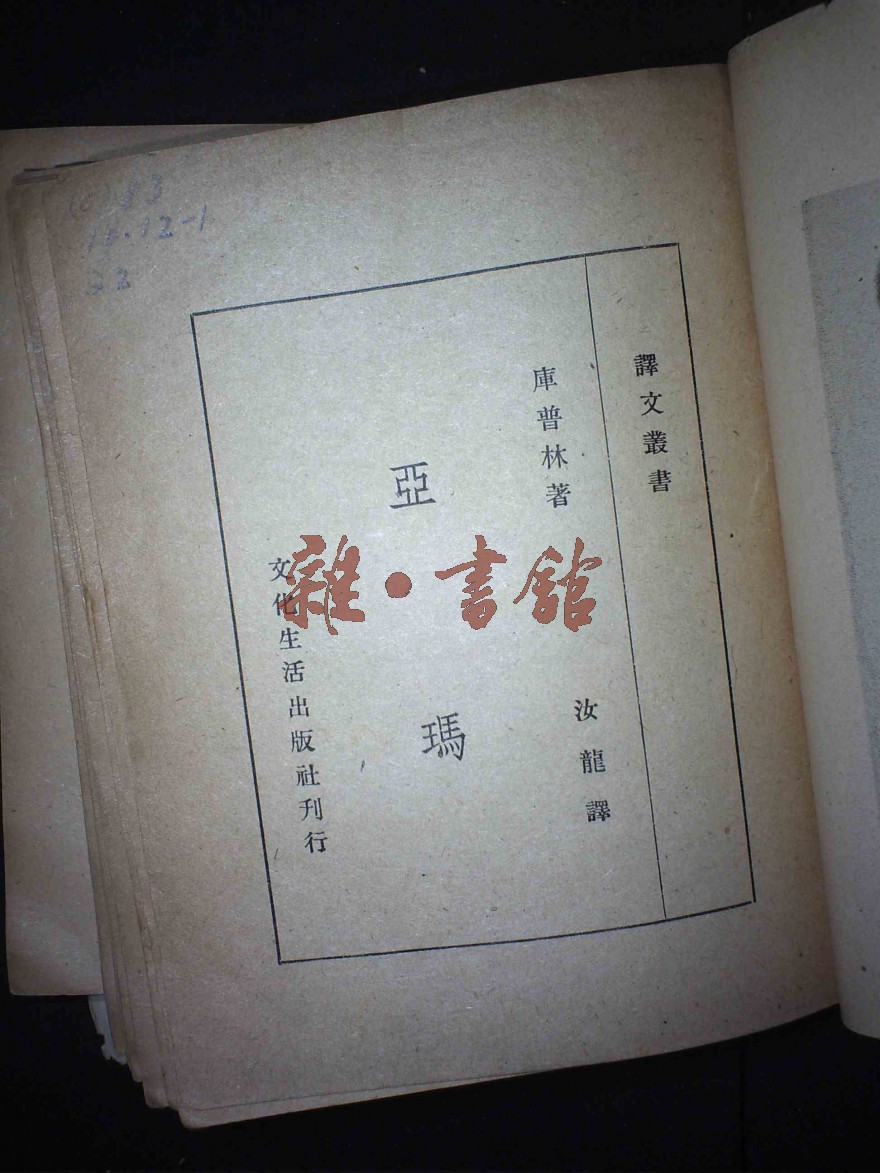 譯文叢書
庫普林著
汝龍譯
亞瑪
文化生活出版社刊行
雜·書館
12-1